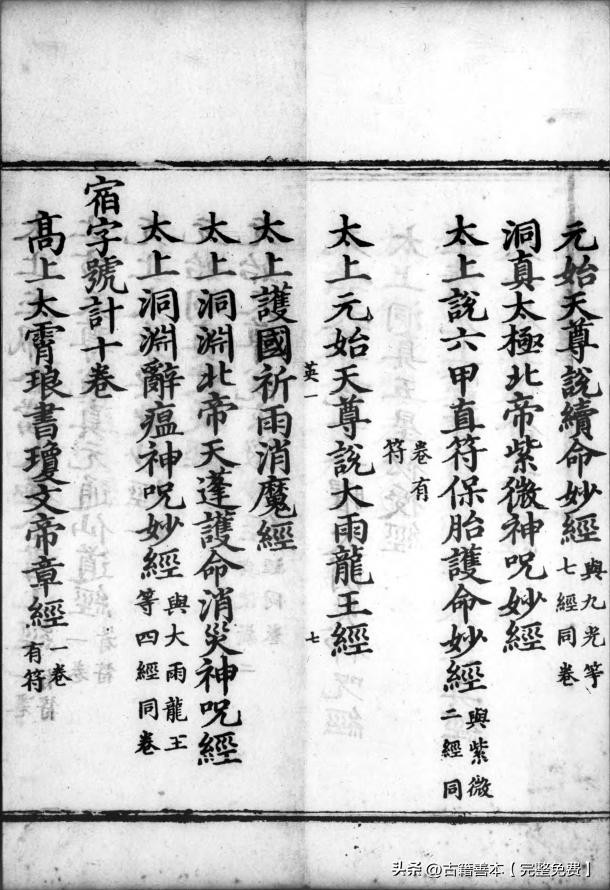 元始天尊說續命妙經 與九光等七經同卷
洞真太極北帝紫微神呪妙經
太上說六甲直符保胎護命妙經 與紫微二經同
卷有符
太上元始天尊說大雨龍王經
英一 七
太上護國祈雨消魔經
太上洞淵北帝天蓬護命消災神呪經
太上洞淵辭瘟神呪妙經 與大雨龍王等四經同卷
宿字號計十卷
高上太霄琅書瓊文帝章經 一卷有符
头条 @古籍善本【完整免费】